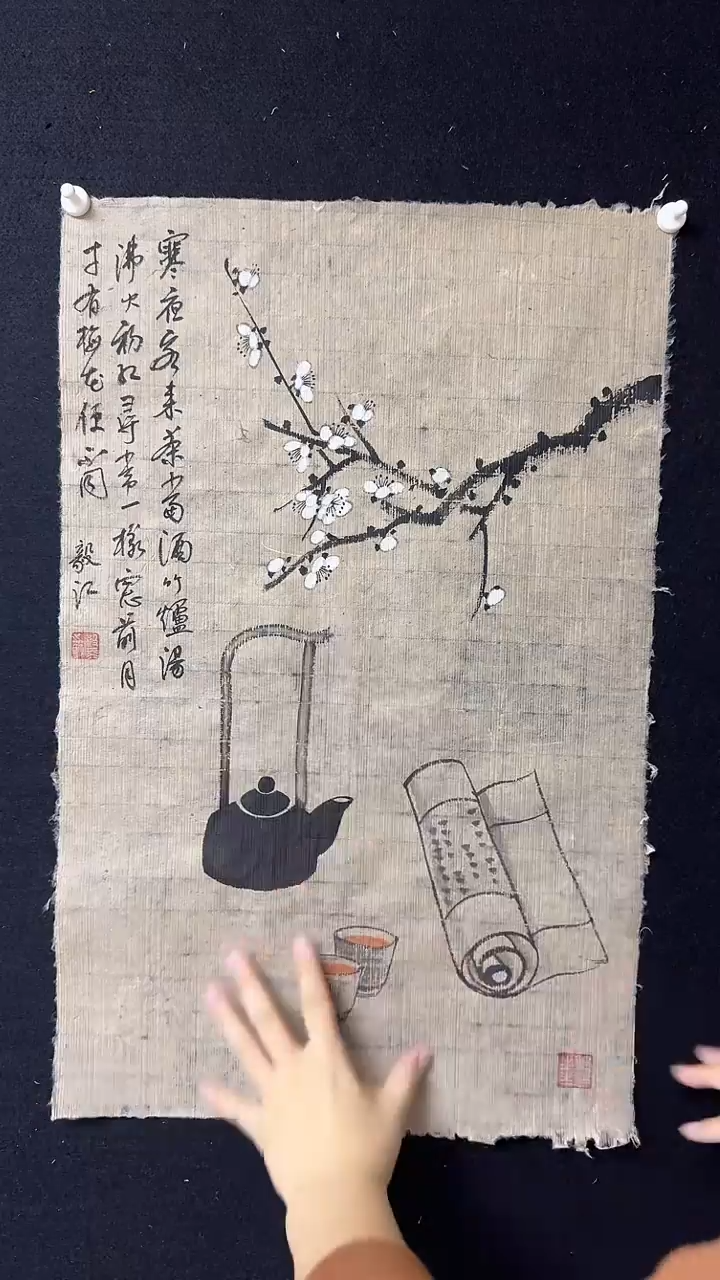 寒夜客来茶當酒竹爐湯
沸火初红尋常一樣窓前月
才有梅花便不同
毅江